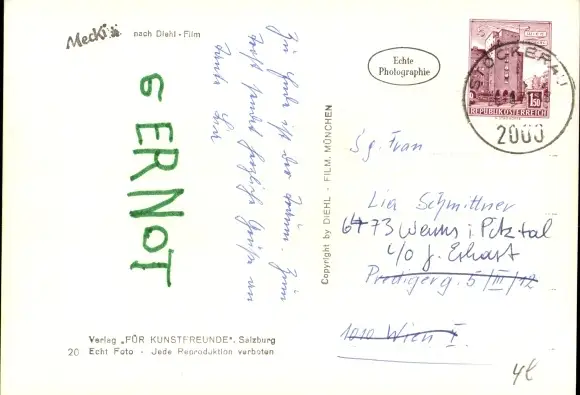 Mecki nach Diehl-Film
Zu Ende ist der Traum. Zum
Trost sendet herzliche Grüße an
Tante Lia
GERNOT
Verlag „FÜR KUNSTFREUNDE“. Salzburg
20 Echt Foto - Jede Reproduktion verboten
Copyright by DIEHL - FILM, MÜNCHEN
Echte
Photographie
REPUBLIK ÖSTERREICH
1.50
STOCKERAU
2000
Sg. Frau
Lia Schmittner
6473 Wenns i. Pitztal
c/o J. Erhart
Predigerg. 5/III/12
1010 Wien I.
4€